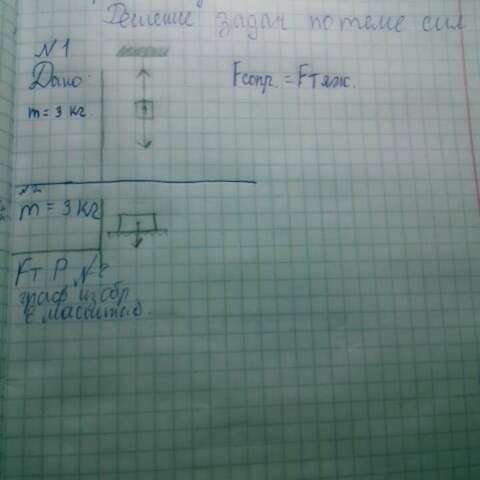 Решение задач по теме сил
N1
Дано:
Fсопр. = Fтяж.
m = 3 кг
N2
m = 3 кг
Fт P N-?
граф. изобр.
масштаб.